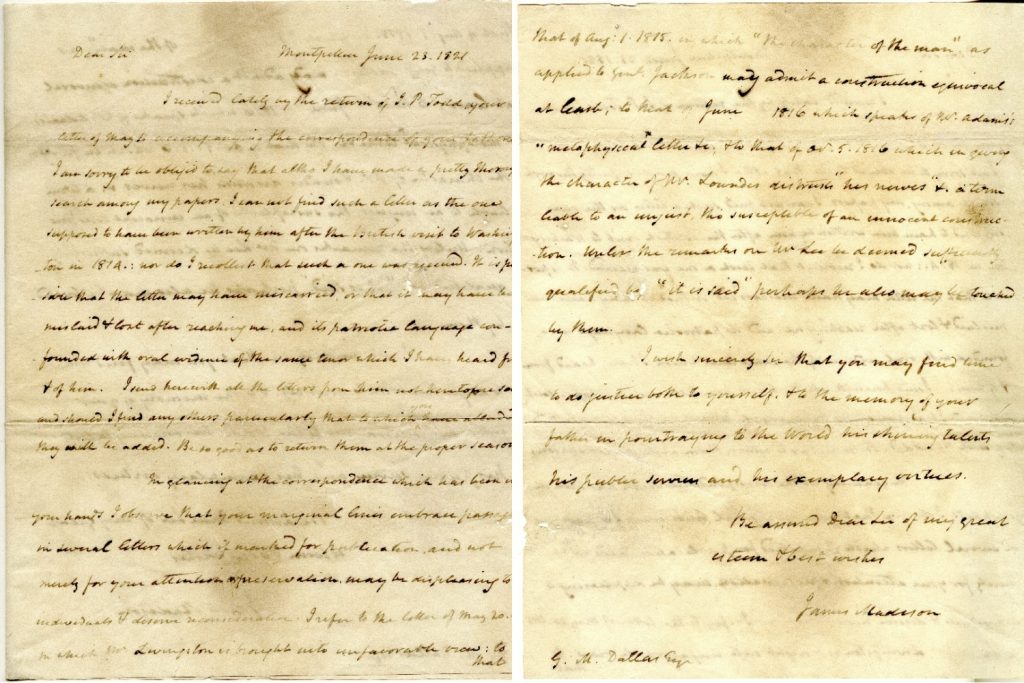 Dear Sir Montpellier June 23. 1821
I recd lately by the return of J. P. Todd your
letter of May 10 accompanying the correspondence of your father.
I am sorry to be obliged to say that altho I have made a pretty thorough
search among my papers, I can not find such a letter as the one
supposed to have been written by him after the British visit to Washing
ton in 1814: nor do I recollect that such a one was received. It is
that the letter may have miscarried or that it may have
mislaid & lost after reaching me, and its patriotic language con-
founded with oral evidence of the same tenor which I have heard
& of him. I send herewith all the letters from him not heretofore
and should I find any others particularly that to which
they will be added. Be so good as to return them at the proper season
In glancing at the correspondence which has been
your hands I observe that your marginal lines embrace
in several letters which if marked for publication, and not
merely for your attention & preservation may be displeasing to
individuals & deserve reconsideration. I refer to the letter of May 20.
in which Mr. Livingston is brought into unfavorable view: to
that
that of Augt. 1. 1815. in which "the character of the man" as
applied to Genl. Jackson may admit a construction equivocal
at least; to that of June 1816 which speaks of Mr. Adams's
"metaphysical" letter &c, & to that of 5. 1816 which in giving
the character of Mr. Lowndes distrusts "his nerves" &. a term
liable to an unjust, tho susceptible of an innocent construc-
tion. Unless the remarks on Mr Lee be deemed sufficiently
qualified by "it is said" perhaps he also may be touched
by them.
I wish sincerely Sir that you may find time
to do justice both to yourself, & to the memory of your
father in pourtraying to the World his shining talents
his public services and his exemplary virtues.
Be assured Dear Sir of my great
esteem & best wishes
James Madison
G. M. Dallas Esqr